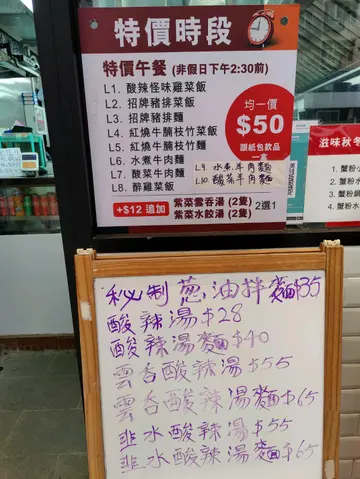 特價時段
特價午餐 (非假日下午2:30前)
L1. 酸辣怪味雞菜飯
L2. 招牌豬排菜飯
L3. 招牌豬排麵
L4. 紅燒牛腩枝竹菜飯
L5. 紅燒牛腩枝竹麵
L6. 水煮牛肉麵
L7. 酸菜牛肉麵
L8. 醉雞菜飯
均一價
$50
跟紙包飲品
一盒
L9. 水煮羊肉麵
L10. 酸菜羊肉麵
+$12 追加
紫菜雲吞湯 (2隻)
紫菜水餃湯 (2隻)
2選1
滋味秋冬
1. 蟹粉
2. 蟹粉水
3. 蟹粉
4. 蟹粉水
秘制葱油拌麵$35
酸辣湯$28
酸辣湯麵$40
雲吞酸辣湯$55
雲吞酸辣湯麵$65
韭水酸辣湯$55
韭水酸辣湯麵$65